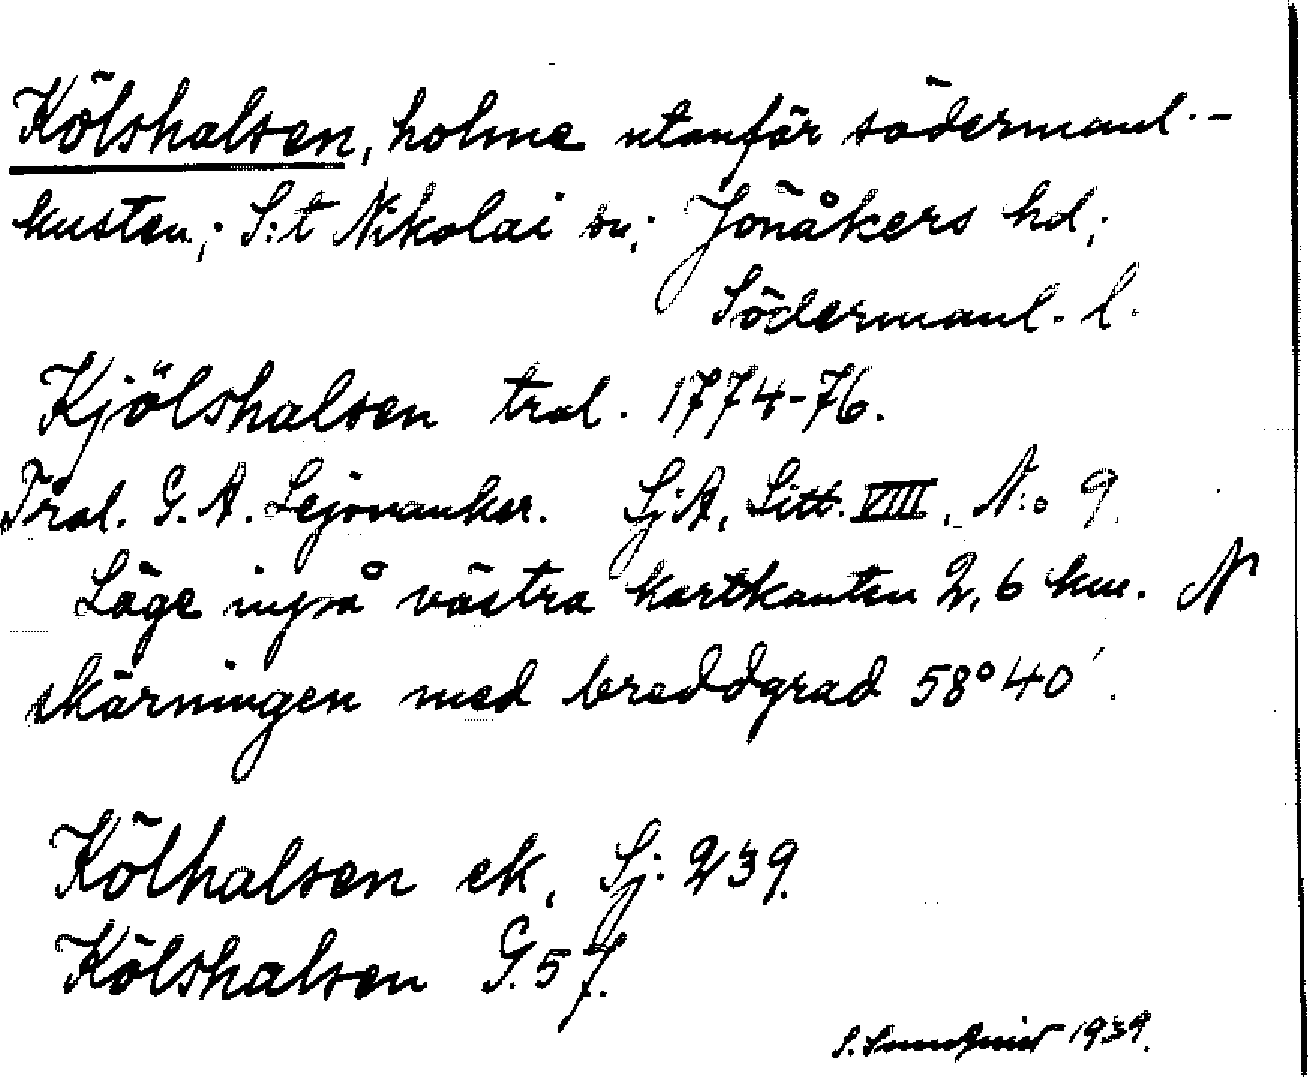 Kölshalsen, holme utanför södermanl.-
kusten; S:t Nikolai sn; Jönåkers hd;
Södermanl. l.
Kjölshalsen tral. 1774-76.
Tral. G. A. Lejonanker. SjA, Litt. VIII, N:o 9.
Läge invpå västra kartkanten 2,6 km. N
skärningen med breddgrad 58°40'.
Kölhalsen ek, Sj. 239.
Kölshalsen G. 57.
S. 1939.